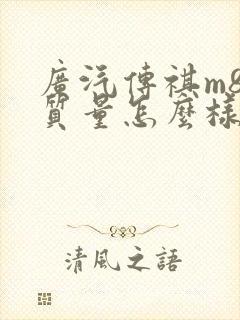 廣汽傳祺m8
質量怎麼樣
清風之語